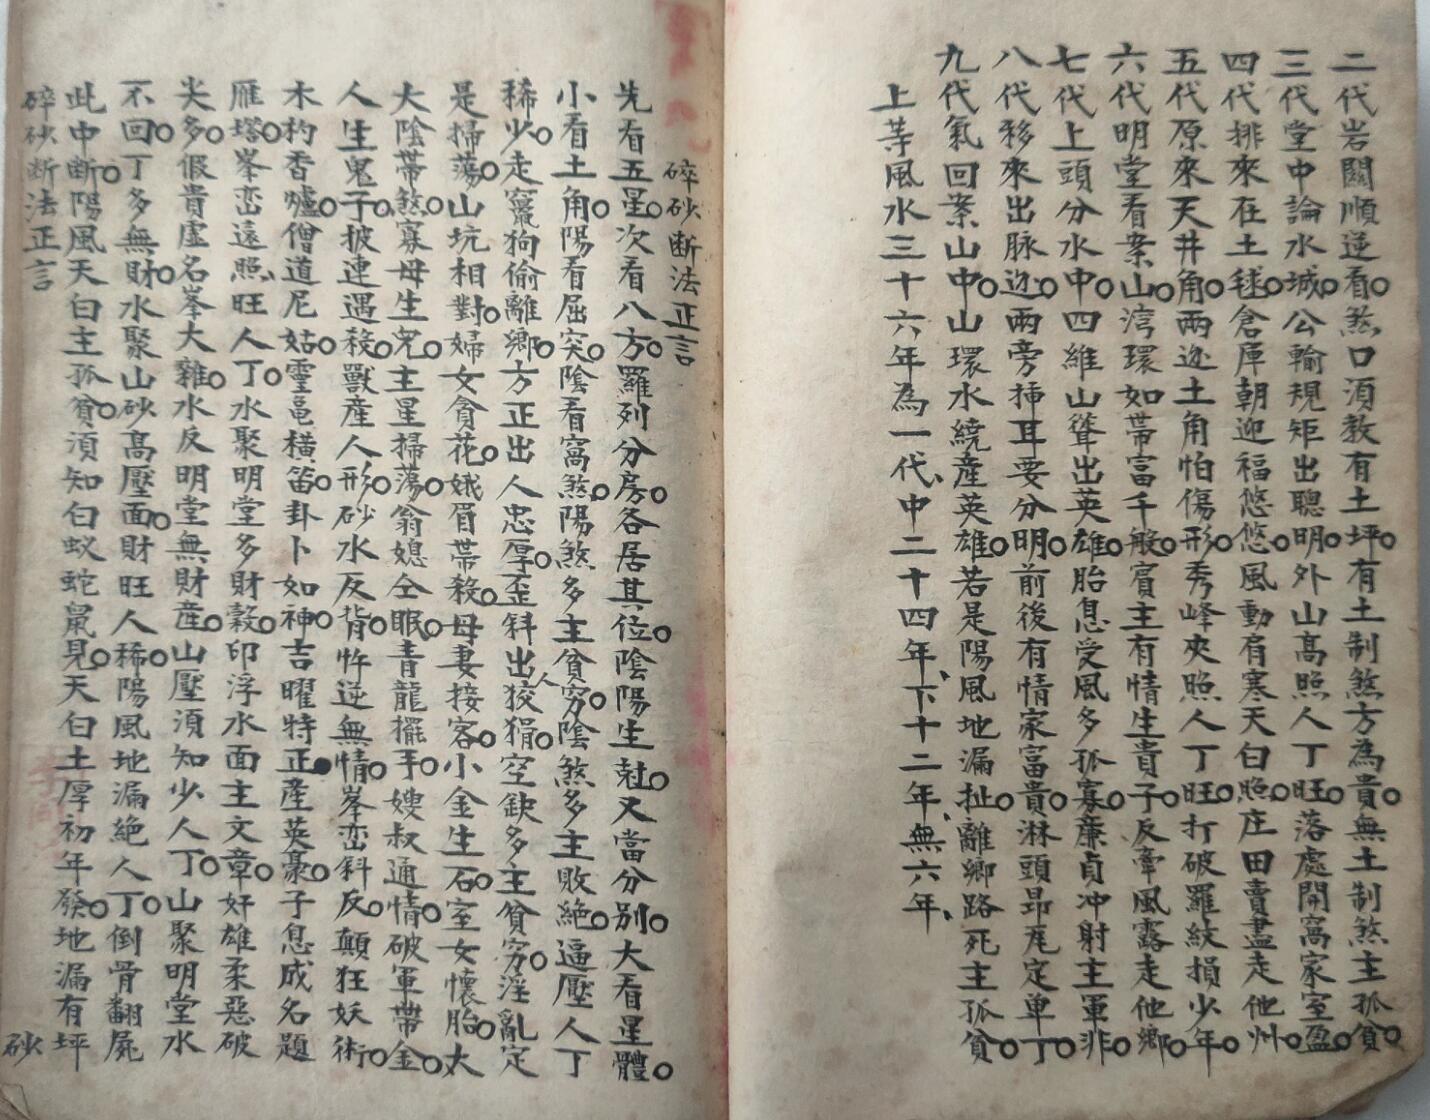 二代岩關順逆看○煞口須教有土坪○有土制煞方為貴○無土制煞主孤貧○
三代堂中論水城○公輸規矩出聰明○外山高照人丁旺○落處開窩家室盈○
四代排來在土毬○倉庫朝迎福悠悠○風動肩寒天白照○庄田賣盡走他州○
五代原來天井角○兩边土角怕傷形○秀峰夾照人丁旺○打破羅紋損少年○
六代明堂看案山○湾環如帶富千般○賓主有情生貴子○反牽風露走他鄉○
七代上頭分水中○四維山聳出英雄○胎息受風多孤寡○廉貞冲射主軍非○
八代移來出脉边○兩旁插耳要分明○前後有情家富貴○淋頭昂尾定单丁○
九代氣回案山中○山環水繞產英雄○若是陽風地漏扯○離鄉路死主孤貧○
上等風水三十六年為一代、中二十四年、下十二年、無六年、
碎砂断法正言
先看五星○次看八方○羅列分房○各居其位○陰陽生尅○又當分别○大看星體○
小看土角○陽看屈突○陰看窩煞○陽煞多主貧穷○陰煞多主敗絶○逼壓人丁
稀少○走竄狗偷離鄉○方正出人忠厚○歪斜出狡猾○空缺多主貧穷○淫亂定
人
是掃蕩○山坑相對○婦女貪花○娥眉帶殺○母妻接客○小金生石○室女懷胎○太
大陰帶煞○寡母生兒○主星掃蕩○翁媳仝眠○青龍擺手○嫂叔通情○破軍帶金○
人生鬼子○披連遇殺○獸産人形○砂水反背○忤逆無情○峯峦斜反○顛狂妖術○
木杓香爐○僧道尼姑○靈黽横笛○卦卜如神○吉曜特正○産英豪○子息成名題
雁塔○峯峦遠照、旺人丁○水聚明堂多財穀○印浮水面主文章○奸雄柔惡破
尖多○假貴虛名峯大雜○水反明堂無財産○山壓須知少人丁○山聚明堂水
不回○丁多無財○水聚山砂高壓面○財旺人稀○陽風地漏絶人丁○倒骨翻屍
此中断○陽風天白主孤貧○須知白蚁蛇鼠見○天白土厚初年發○地漏有坪
碎砂断法正言
砂